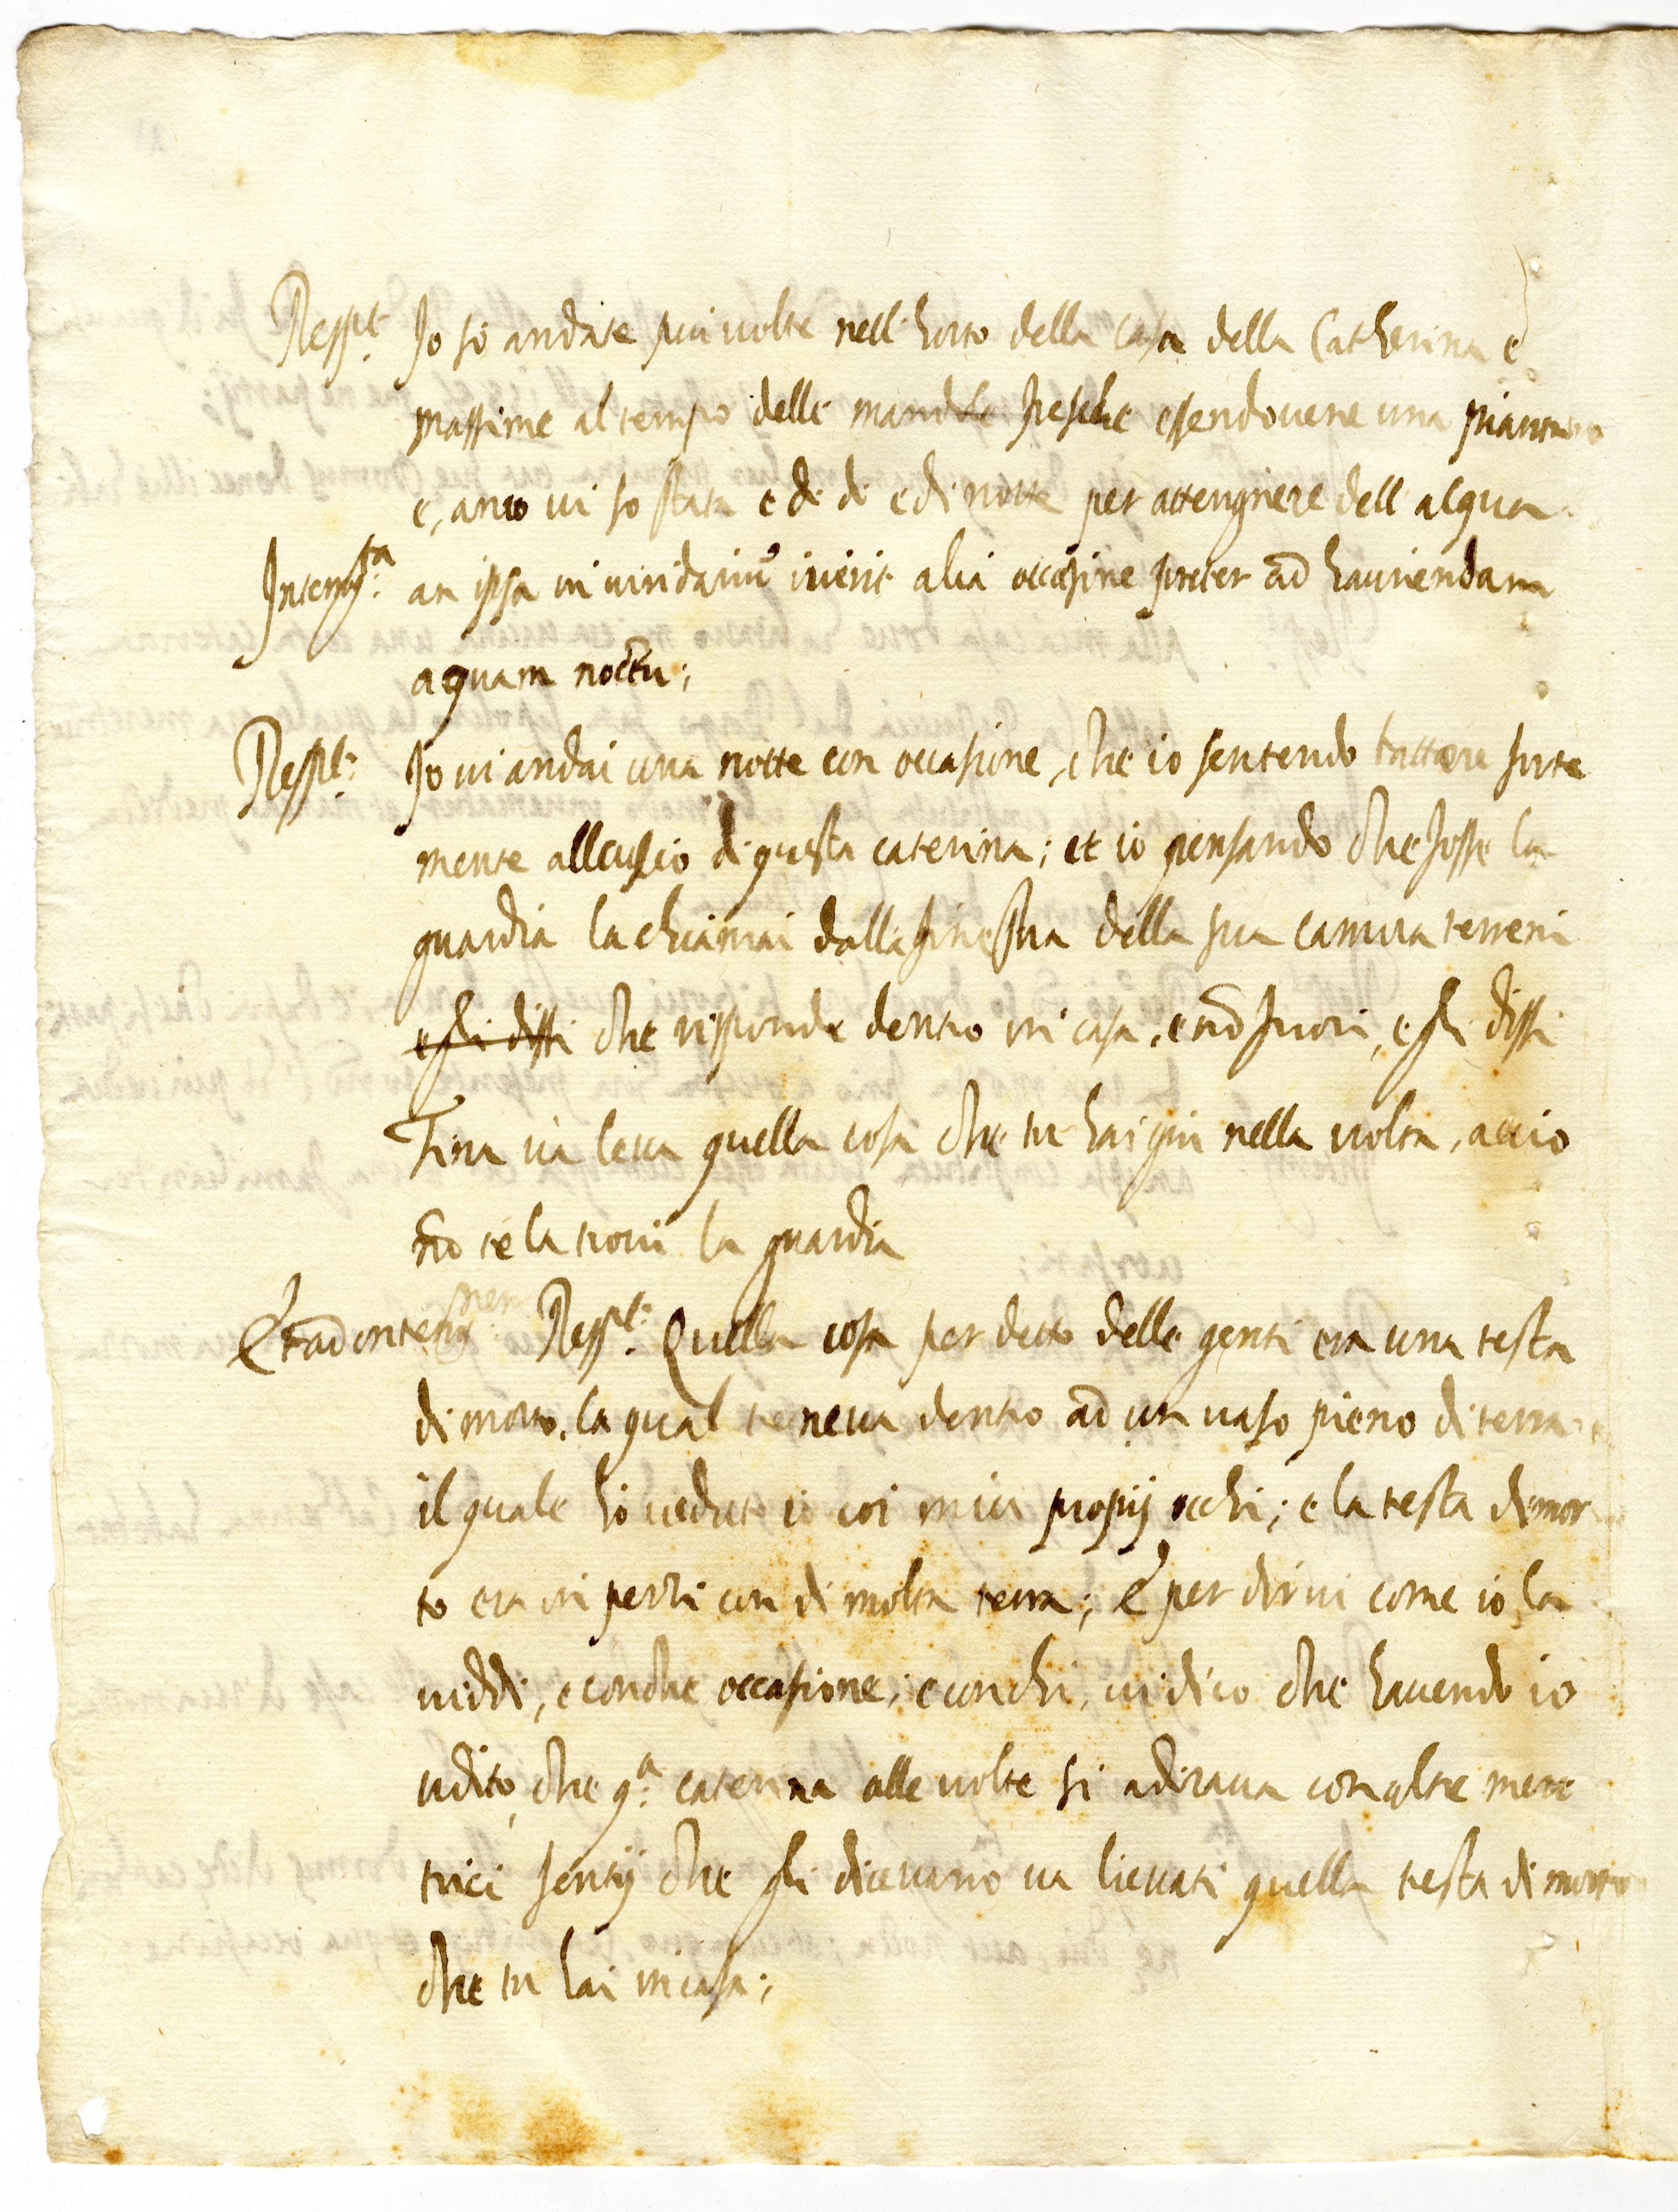 Respt. Io so andate piu volte nell'horto della casa della Catherina e
massime al tempo delle mandole fresche essendovene una pianta
e, anco vi so stata e di di e di notte per attengniere dell'acqua
Interrogta. an ipsa in viridariũ iverit alia occasione preter ad hauriendam
aquam noctu;
Respt: Io vi andai una notte con occasione, che io sentendo battere forte
mente all'uscio di questa caterina; et io pensando che fosse la
guardia la chiamai dalla finestra della sua camara terreni
e gli dissi che risponde dentro in casa, e nõ fuori, e gli dissi
Tina va leva quella cosa che tu hai giu nella volta, accio
nõ te la trovi la guardia
Et ad interrog: Respt: Quella cosa per detto delle genti era una testa
di morto, la qual teneva dentro ad un vaso pieno di terra
il quale hò veduto io coi miei proprij occhi; e la testa di mor
to era ivi con di molta terra; e per dirvi come io la
viddi, e con che occasione, e con chi, vi dico che havendo io
udito, che qa. caterina alle volte si adirava con altre mere
trici sentij che gli dicevano va lievati quella testa di morto
che tu lai in casa;